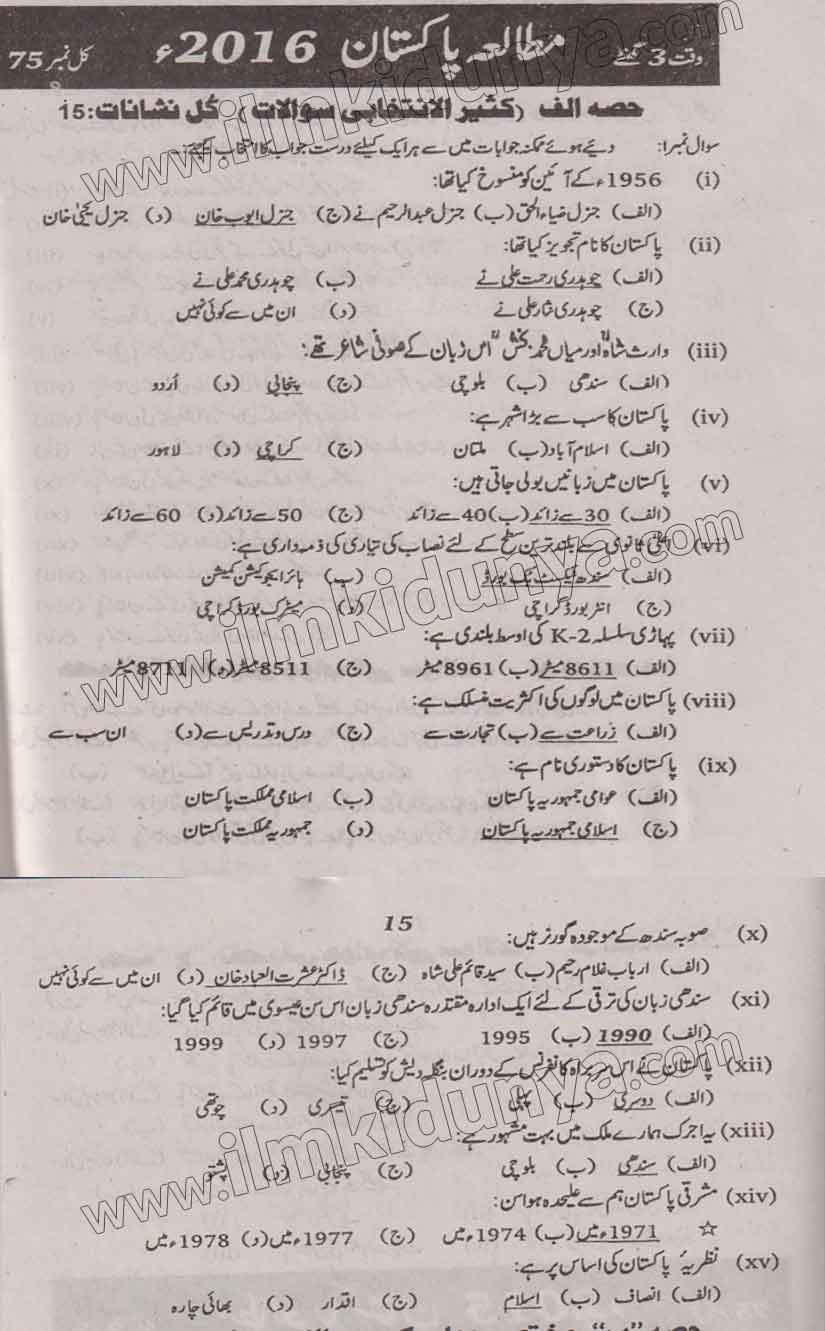 وقت 3 گھنٹے مطالعہ پاکستان 2016ء کل نمبر 75
حصہ الف (کثیر الانتخابی سوالات) کُل نشانات: 15
سوال نمبر1: دیئے ہوئے ممکنہ جوابات میں سے ہر ایک کیلئے درست جواب کا انتخاب کیجئے:-
(i) 1956ء کے آئین کو منسوخ کیا تھا:
(الف) جنرل ضیاء الحق (ب) جنرل عبدالرحیم نے (ج) جنرل ایوب خان (د) جنرل یحیٰی خان
(ii) پاکستان کا نام تجویز کیا تھا:
(الف) چوہدری رحمت علی نے (ب) چوہدری محمد علی نے
(ج) چوہدری نثار علی نے (د) ان میں سے کوئی نہیں
(iii) وارث شاہؒ اور میاں محمد بخشؒ اس زبان کے صوفی شاعر تھے:
(الف) سندھی (ب) بلوچی (ج) پنجابی (د) اُردو
(iv) پاکستان کا سب سے بڑا شہر ہے:
(الف) اسلام آباد (ب) ملتان (ج) کراچی (د) لاہور
(v) پاکستان میں زبانیں بولی جاتی ہیں:
(الف) 30 سے زائد (ب) 40 سے زائد (ج) 50 سے زائد (د) 60 سے زائد
(vi) اعلیٰ ثانوی سے بلند ترین سطح کے لئے نصاب کی تیاری کی ذمہ داری ہے:
(الف) سندھ ٹیکسٹ بک بورڈ (ب) ہائر ایجوکیشن کمیشن
(ج) انٹر بورڈ کراچی (د) میٹرک بورڈ کراچی
(vii) پہاڑی سلسلہ K-2 کی اوسط بلندی ہے:
(الف) 8611 میٹر (ب) 8961 میٹر (ج) 8511 میٹر (د) 8711 میٹر
(viii) پاکستان میں لوگوں کی اکثریت منسلک ہے:
(الف) زراعت سے (ب) تجارت سے (ج) درس و تدریس سے (د) ان سب سے
(ix) پاکستان کا دستوری نام ہے:
(الف) عوامی جمہوریہ پاکستان (ب) اسلامی مملکت پاکستان
(ج) اسلامی جمہوریہ پاکستان (د) جمہوریہ مملکت پاکستان
15
(x) صوبہ سندھ کے موجودہ گورنر ہیں:
(الف) ارباب غلام رحیم (ب) سید قائم علی شاہ (ج) ڈاکٹر عشرت العباد خان (د) ان میں سے کوئی نہیں
(xi) سندھی زبان کی ترقی کے لئے ایک ادارہ مقتدرہ سندھی زبان اس سن عیسوی میں قائم کیا گیا:
(الف) 1990 (ب) 1995 (ج) 1997 (د) 1999
(xii) پاکستان نے اس سربراہ کانفرنس کے دوران بنگلہ دیش کو تسلیم کیا:
(الف) دوسری (ب) پہلی (ج) تیسری (د) چوتھی
(xiii) یہ اجرک ہمارے ملک میں بہت مشہور ہے:
(الف) سندھی (ب) بلوچی (ج) پنجابی (د) پشتو
(xiv) مشرقی پاکستان ہم سے علیحدہ ہوا سن:
☆ 1971ء میں (ب) 1974ء میں (ج) 1977ء میں (د) 1978ء میں
(xv) نظریۂ پاکستان کی اساس پر ہے:
(الف) انصاف (ب) اسلام (ج) اقدار (د) بھائی چارہ
www.ilmkidunya.com
www.ilmkidunya.com
www.ilmkidunya.com
www.ilmkidunya.com